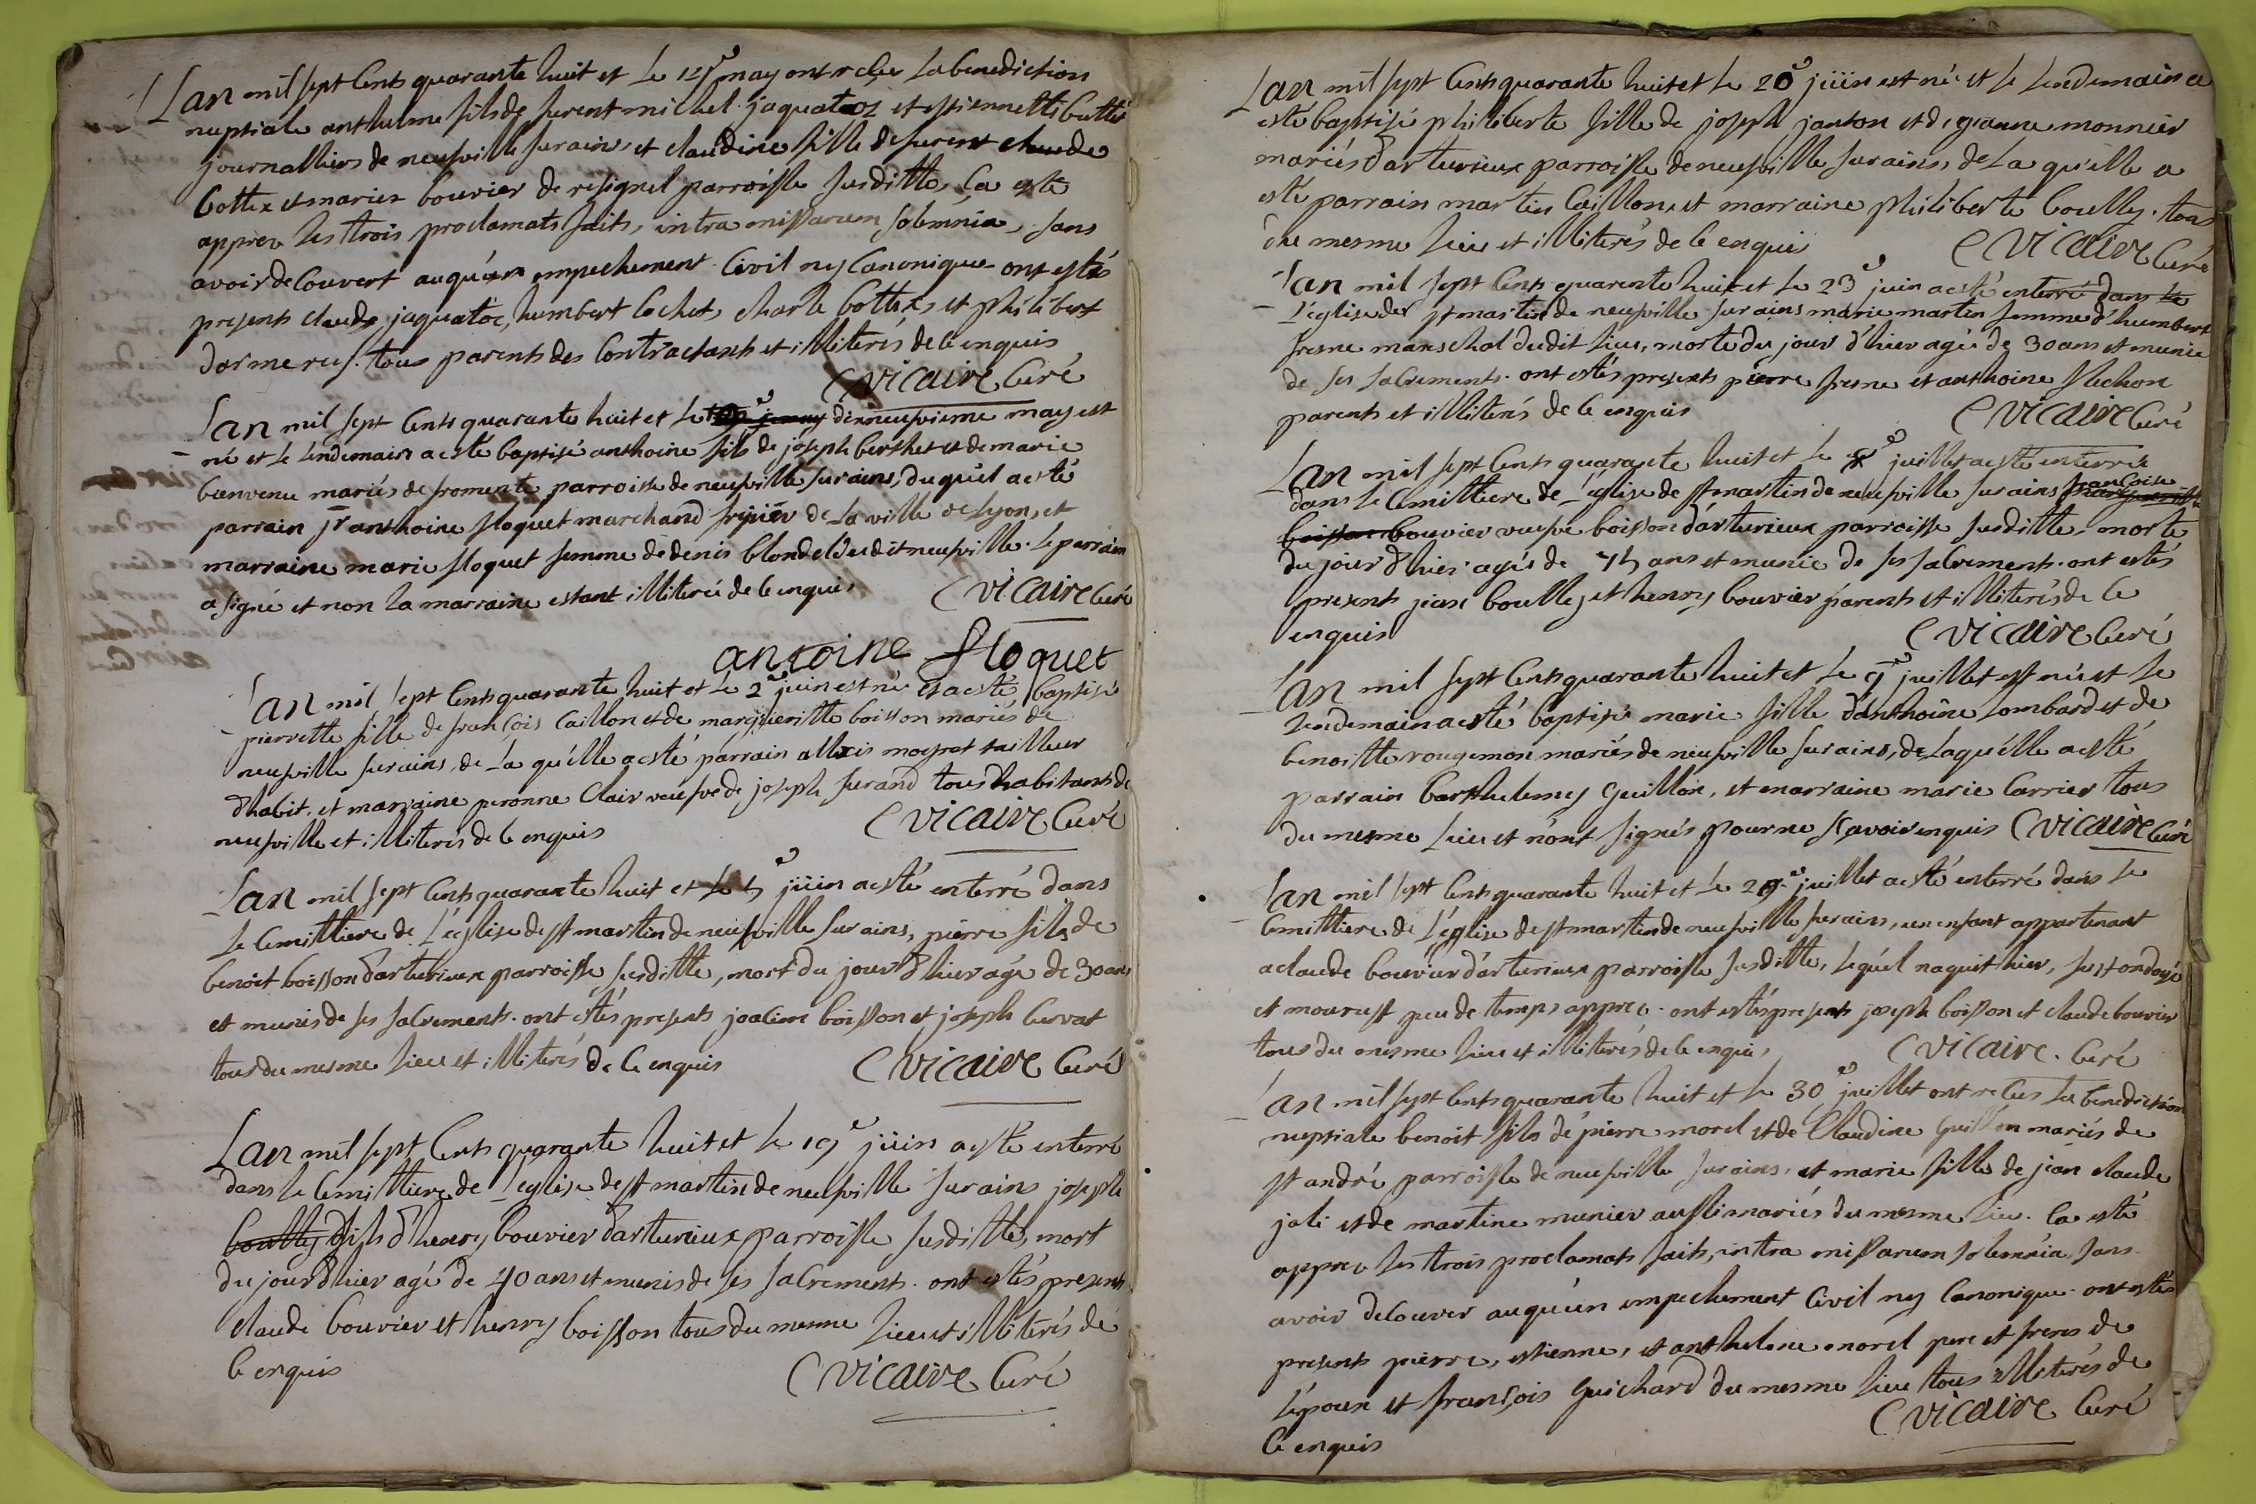 Lan mil sept Cents quarante huit et le may ont reçües La benediction
nuptiale anthelme fils de furent michel jaquatoz et estiennette
journalliers de neufville sur ains, et claudine fille de furent claude
Cottex et marier bouvier de resignel parroisse susditte, Ca esté
apprez les trois proclamats faits, intra missarum solemnia, sans
avoir decouvert auqu'un empechement Civil ny Canonique ont estés
presents claude jaquatoz, humbert cochet, charle Cottex, et philibert
tous parents des Contractants et illiterés de le enquis
C vicaire Curé
Lan mil sept Cents quarante huit et le dixneufvieme may est
né et le lendemain a esté baptisé anthoine fils de joseph berthet et de marie
bienvenu mariés de fromente parroisse de neufville sur ains, duquel a esté
parrain sr anthoine floquet marchand fripier de La ville de Lyon, et
marraine marie floquet femme de denis blondel dudit neufville. Le parrain
a signé et non La marraine estant illiterée de le enquis C vicaire Curé
antoine floquet
Lan mil sept Cents quarante huit et le 2e juin est né et a esté baptisée
pierrette fille de francois Caillon et de margueritte boisson mariés de
neufville sur ains, de La qu'elle a esté parrain allexis moyret tailleur
d'habit, et marraine peronne Clair veufve de joseph furand tous habitants de
neufville et illiterés de le enquis C vicaire Curé
Lan mil sept Cents quarante huit et le 5e juin a esté enterré dans
Le Cemittiere de L'église de st martin de neufville sur ains, pierre fils de
benoit boisson d'arturieux parroisse susditte, mort du jour d'hier agé de 30 ans
et munis de ses sacrements. ont estés presents joacim boisson et joseph Cervat
tous du mesme Lieu et illiterés de le enquis C vicaire Curé
Lan mil sept Cents quarante huit et le 19e juin a esté enterré
dans le Cemittiere de L'eglise de st martin de neufville sur ains joseph
boully fils d'henry bouvier d'arturieux parroisse susditte, mort
du jour d'hier agé de 40 ans et munis de ses sacrements. ont estés presents
claude bouvier et henry boisson tous du mesme Lieu et illiterés de
le enquis C vicaire Curé
Lan mil sept Cents quarante huit et le 20e juin est né et le Lendemain a
esté baptisé philiberte fille de joseph janton et de jeanne monnier
mariés d'arturieux parroisse de neufville sur ains, de La qu'elle a
esté parrain martin Caillon, et marraine philiberte boully. tous
du mesme Lieu et illiterés de le enquis C vicaire Curé
Lan mil sept Cents quarante huit et le 23e juin a esté enterré dans Le
L'église de st martin de neufville sur ains marie martin femme d'humbert
fresne mareschal dudit Lieu, morte du jour d'hier agée de 30 ans et munie
de ses sacrements. ont estés presents pierre fresne et anthoine
parents et illiterés de le enquis C vicaire Curé
Lan mil sept Cents quarante huit et le juillet a esté enterrée
dans le Cemittiere de L'eglise de st martin de neufville sur ains francoise
boisson bouvier veufve boisson d'arturieux parroisse susditte, morte
du jour d'hier agée de 75 ans et munie de ses sacrements. ont estés
presents jean boully et henry bouvier parents et illiterés de le
enquis C vicaire Curé
Lan mil sept Cents quarante huit et le 9e juillet est née et le
Lendemain a esté baptisée marie fille d'anthoine Lombard et de
benoitte rougemon mariés de neufville sur ains, de Laqu'elle a esté
parrain barthelemy Guillon, et marraine marie Carrier tous
du mesme Lieu et n'ont signés pour ne sçavoir enquis C vicaire Curé
Lan mil sept Cents quarante huit et le 29e juillet a esté enterré dans Le
Cemittiere de L'église de st martin de neufville sur ains, un enfant appartenant
a claude bouvier d'arturieux parroisse susditte, Lequel naquit hier, fust ondoyé
et mourust peu de temps apprez. ont estés presents joseph boisson et claude bouvier
tous du mesme Lieu et illiterés de le enquis C vicaire. Curé
Lan mil sept Cents quarante huit et le 30e juillet ont reçües La benediction
nuptiale benoit fils de pierre morel et de Claudine Guillon mariés de
st andré parroisse de neufville sur ains, et marie fille de jean claude
joli et de martine munier aussi mariés du mesme Lieu. Ca esté
apprez les trois proclamats faits, intra missarum solemnia, sans
avoir decouver auqu'un empechement Civil ny Canonique. ont estés
presents pierre, estienne, et anthelme morel pere et freres de
L'epoux et francois Guichard du mesme Lieu tous illiterés de
le enquis C vicaire Curé